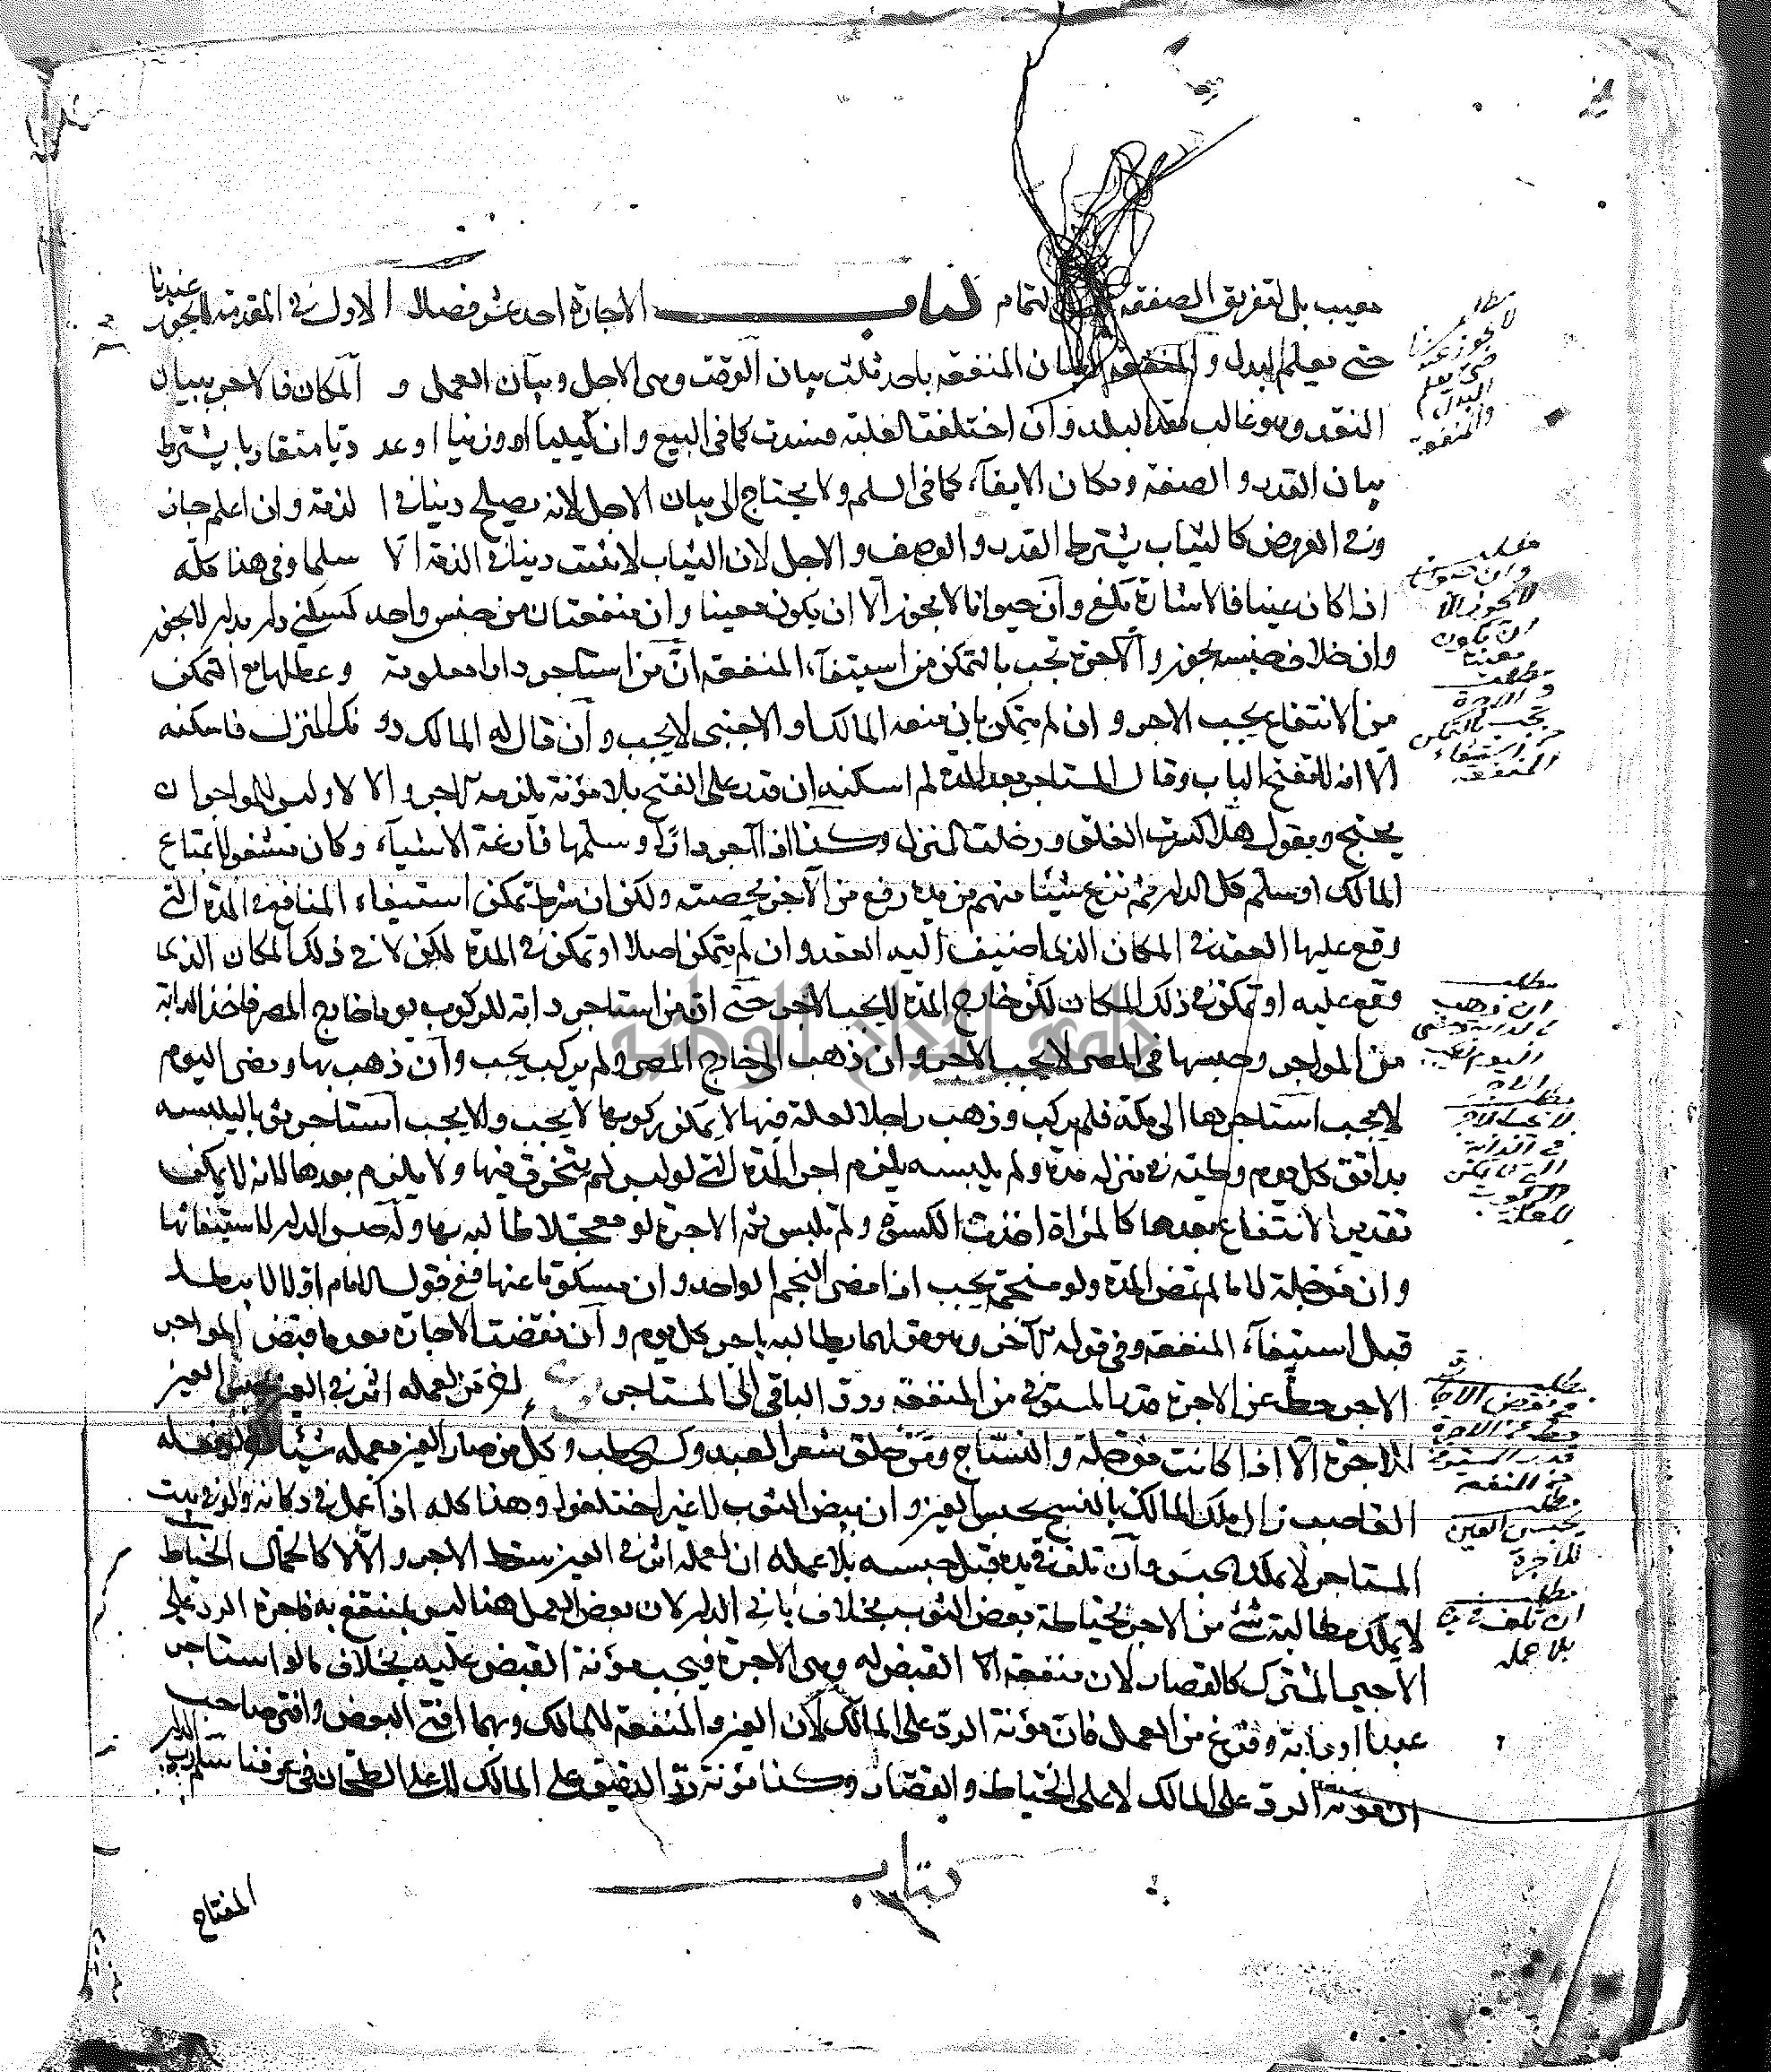 معيب بل لتفريق الصفقة التمام كتاب الاجارة احد عشر فصلا الاول في المقدمة لا يجوز عندنا
حتى يعلم البدل والمنفعة وبيان المنفعة باحد ثلث بيان الوقت وهي الاجل وبيان العمل و المكان فالاجر ببيان
النقد وهو غالب نقد البلد وان اختلفت الغلبة فسدت كما في البيع وان كيليا او وزنيا او عد ديا متقاربا يشترط
بيان القدر والصفة ومكان الايفآء كما في السلم ولا يحتاج الى بيان الاجل لانه يصلح دينا في ا لذمة وان اعلم جاز
وفي العروض كالثياب يشترط القدر والوصف والاجل لان الثياب لا تثبت دينا في الذمة الا سلما وفي هذا كله
اذا كان عينا فالاشارة يكفي وان حيوانا لا يجوز الا ان يكون معينا وان منفعتان من جنس واحد كسكنى دار بدار لا يجوز
وان خلاف جنسه يجوز والاجرة تجب بالتمكن من استيفآء المنفعة ان من استاجر دارا معلومة وعطلها مع التمكن
من الانتفاع يجب الاجر وان لم يتمكن بان منعه المالك او الاجنبي لا يجب وان قال له المالك دو نك المنزل فاسكنه
الا انه لم يفتح الباب وقال المستاجر بعد المدة لم اسكنه ان قدر على الفتح بلا مؤنة يلزمه الاجر والا لا وليس للمواجر ان
يحتج ويقول هلا كسرت الغلق ودخلت المنزل وكذا اذا آجر دارا وسلمها فارغة الاشيآء وكان مشغولا بمتاع
المالك او سلم كل الدار ثم نزع شيئا منهم من يده رفع من الاجر بحصته ولكن ان شرط تمكن استيفاء المنافع في المدة التي
وقع عليها العقد في المكان الذي اضيف اليه العقد وان لم يتمكن اصلا او تمكن في المدة لكن لا في ذلك المكان الذي
وقع عليه او تمكن في ذلك المكان لكن خارج المدة لا يجب الاجر حتى ان من استاجر دابة للركوب يوما خارج المصر فاخذ الدابة
من المواجر وحبسها في المصر لا يجب الاجر وان ذهب الى خارج المصر ولم يركب يجب وان ذهب بها ومضى اليوم
لا يجب استاجرها الى مكة فلم يركب وذهب راجلا لعلة فيها لا يمكن ركوبها لا يجب والا يجب استاجر ثوبا ليلبسه
بدانق كل يوم وضعه في منزله مدة ولم يلبسه يلزم اجر المدة التي لو لبس لم يتخرق فيها ولا يلزم بعدها لانه لا يمكن
تقدير الانتفاع بعدها كالمرأة اخذت الكسوة ولم تلبس ثم الاجرة لو معجلا طالبه بها وله حبس الدار لاستيفائها
وان مؤجلة لا ما لم تمض المدة ولو منجم يجب اذا مضى النجم الواحد وان مسكوتا عنها ففي قول الامام اولا لا يطالب
قبل استيفآء المنفعة وفي قوله الآخر وهو قولهما يطالبه باجر كل يوم وان نقضت الاجارة بعد ما قبض المواجر
الاجر حط عن الاجرة قدر المستوفى من المنفعة ورد الباقي الى المستاجر لعمله اثر في العين حبس العين
للاجرة الا اذا كانت مؤجلة والنساج ومن حلق شعر العبد وكسر حطب وكل من صار العين بعمله شيئا
الغاصب زال ملك المالك بالنسج يحبس العين وان بيض الثوب لا غير اختلفوا وهذا كله اذا عمل في دكانه ولو في بيت
المستاجر لا يملك الحبس وان تلف في يده قبل حبسه بلا عمله ان لعمله اثر في العين سقط الاجر والا لا كالحمال الخياط
لا يملك مطالبة شئ من الاجر بخياطة بعض الثوب بخلاف باني الدار لان بعض العمل هنا ليس بمنتفع به واجرة الرد على
الاجير المشترك كالقصار لان منفعة القبض له وهي الاجرة فيجب مؤنة القبض عليه بخلاف ما لو استاجر
عبدا او دابة وفرغ من العمل فان مؤنة الرد على المالك لان العين والمنفعة للمالك وبهما افتى البعض وافتى صاحب
ان مؤنة الرد على المالك لا على الخياط والقصار وكذا مؤنة رد الدقيق على المالك لا على الطحان في عرفنا
كتاب
المفتاح
مطلب
لا يجوز عندنا
حتى يعلم
البدل
والمنفعة
مطلب
وان حيوانا
لا يجوز الا
ان يكون
معينا
مطلب
والاجرة
تجب بالتمكن
من استيفاء
المنفعة
مطلب
ان ذهب
بالدابة ومضى
اليوم
مطلب
لا يجب الاجر
في الدابة
التي لا يمكن
الركوب
للعلة
مطلب
نقض الاجا
عن الاجرة
قدر المستوفى
من المنفعة
مطلب
يحبس العين
للاجرة
مطلب
ان تلف في يده
بلا عمله